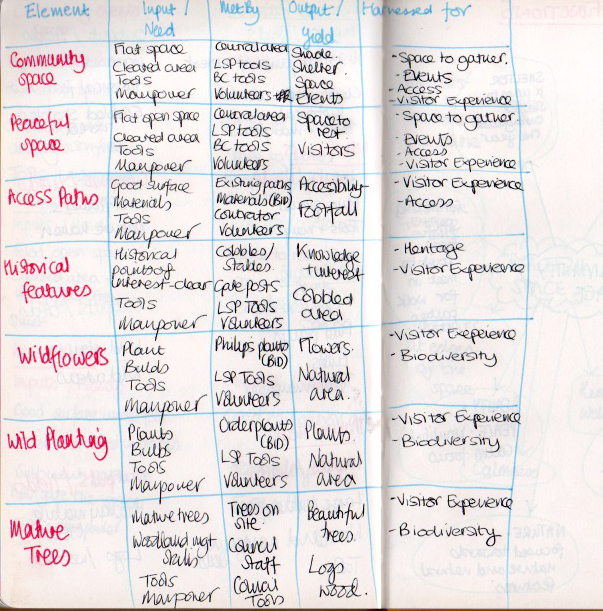 Element Input / Need Met By Output / Yield Harnessed for
Community space
Flat space
Cleared area
Tools
Manpower
Central area
LSP tools
BC tools
Volunteers
Shade.
Shelter.
Space
Events
- Space to gather.
- Events
- Access
- Visitor Experience
Peaceful space
Flat open space
Cleared area
Tools
Manpower
Central area
LSP tools
BC tools
Volunteers
Space to rest.
Visitors
- Space to gather.
- Events
- Access
- Visitor Experience
Access Paths
Good surface
Materials
Tools
Manpower
Existing paths
Materials (BID)
Contractor
Volunteers
Accesibility
Footfall
- Visitor Experience
- Access
Historical features
Historical
points of
interest-clear
Tools
Manpower
Cobbles/
Stables.
Gate posts
LSP Tools
Volunteers
Knowledge
+ interest
Cobbled
area
- Heritage
- Visitor Experience
Wildflowers
Plant
Builds
Tools
Manpower
Philip's plants
(BID)
LSP Tools
Volunteers
Flowers.
Natural
area.
- Visitor Experience
- Biodiversity
Wild Planting
Plants
Bulbs
Tools
Manpower
Order plants
(BID)
LSP Tools
Volunteers
Plants.
Natural
area
- Visitor Experience
- Biodiversity
Mature Trees
Mature trees
Woodland mgt
Skills
Tools
Manpower
Trees on
site.
Council
Staff
Council
Tools
Beautiful
trees
Logs
wood.
- Visitor Experience
- Biodiversity